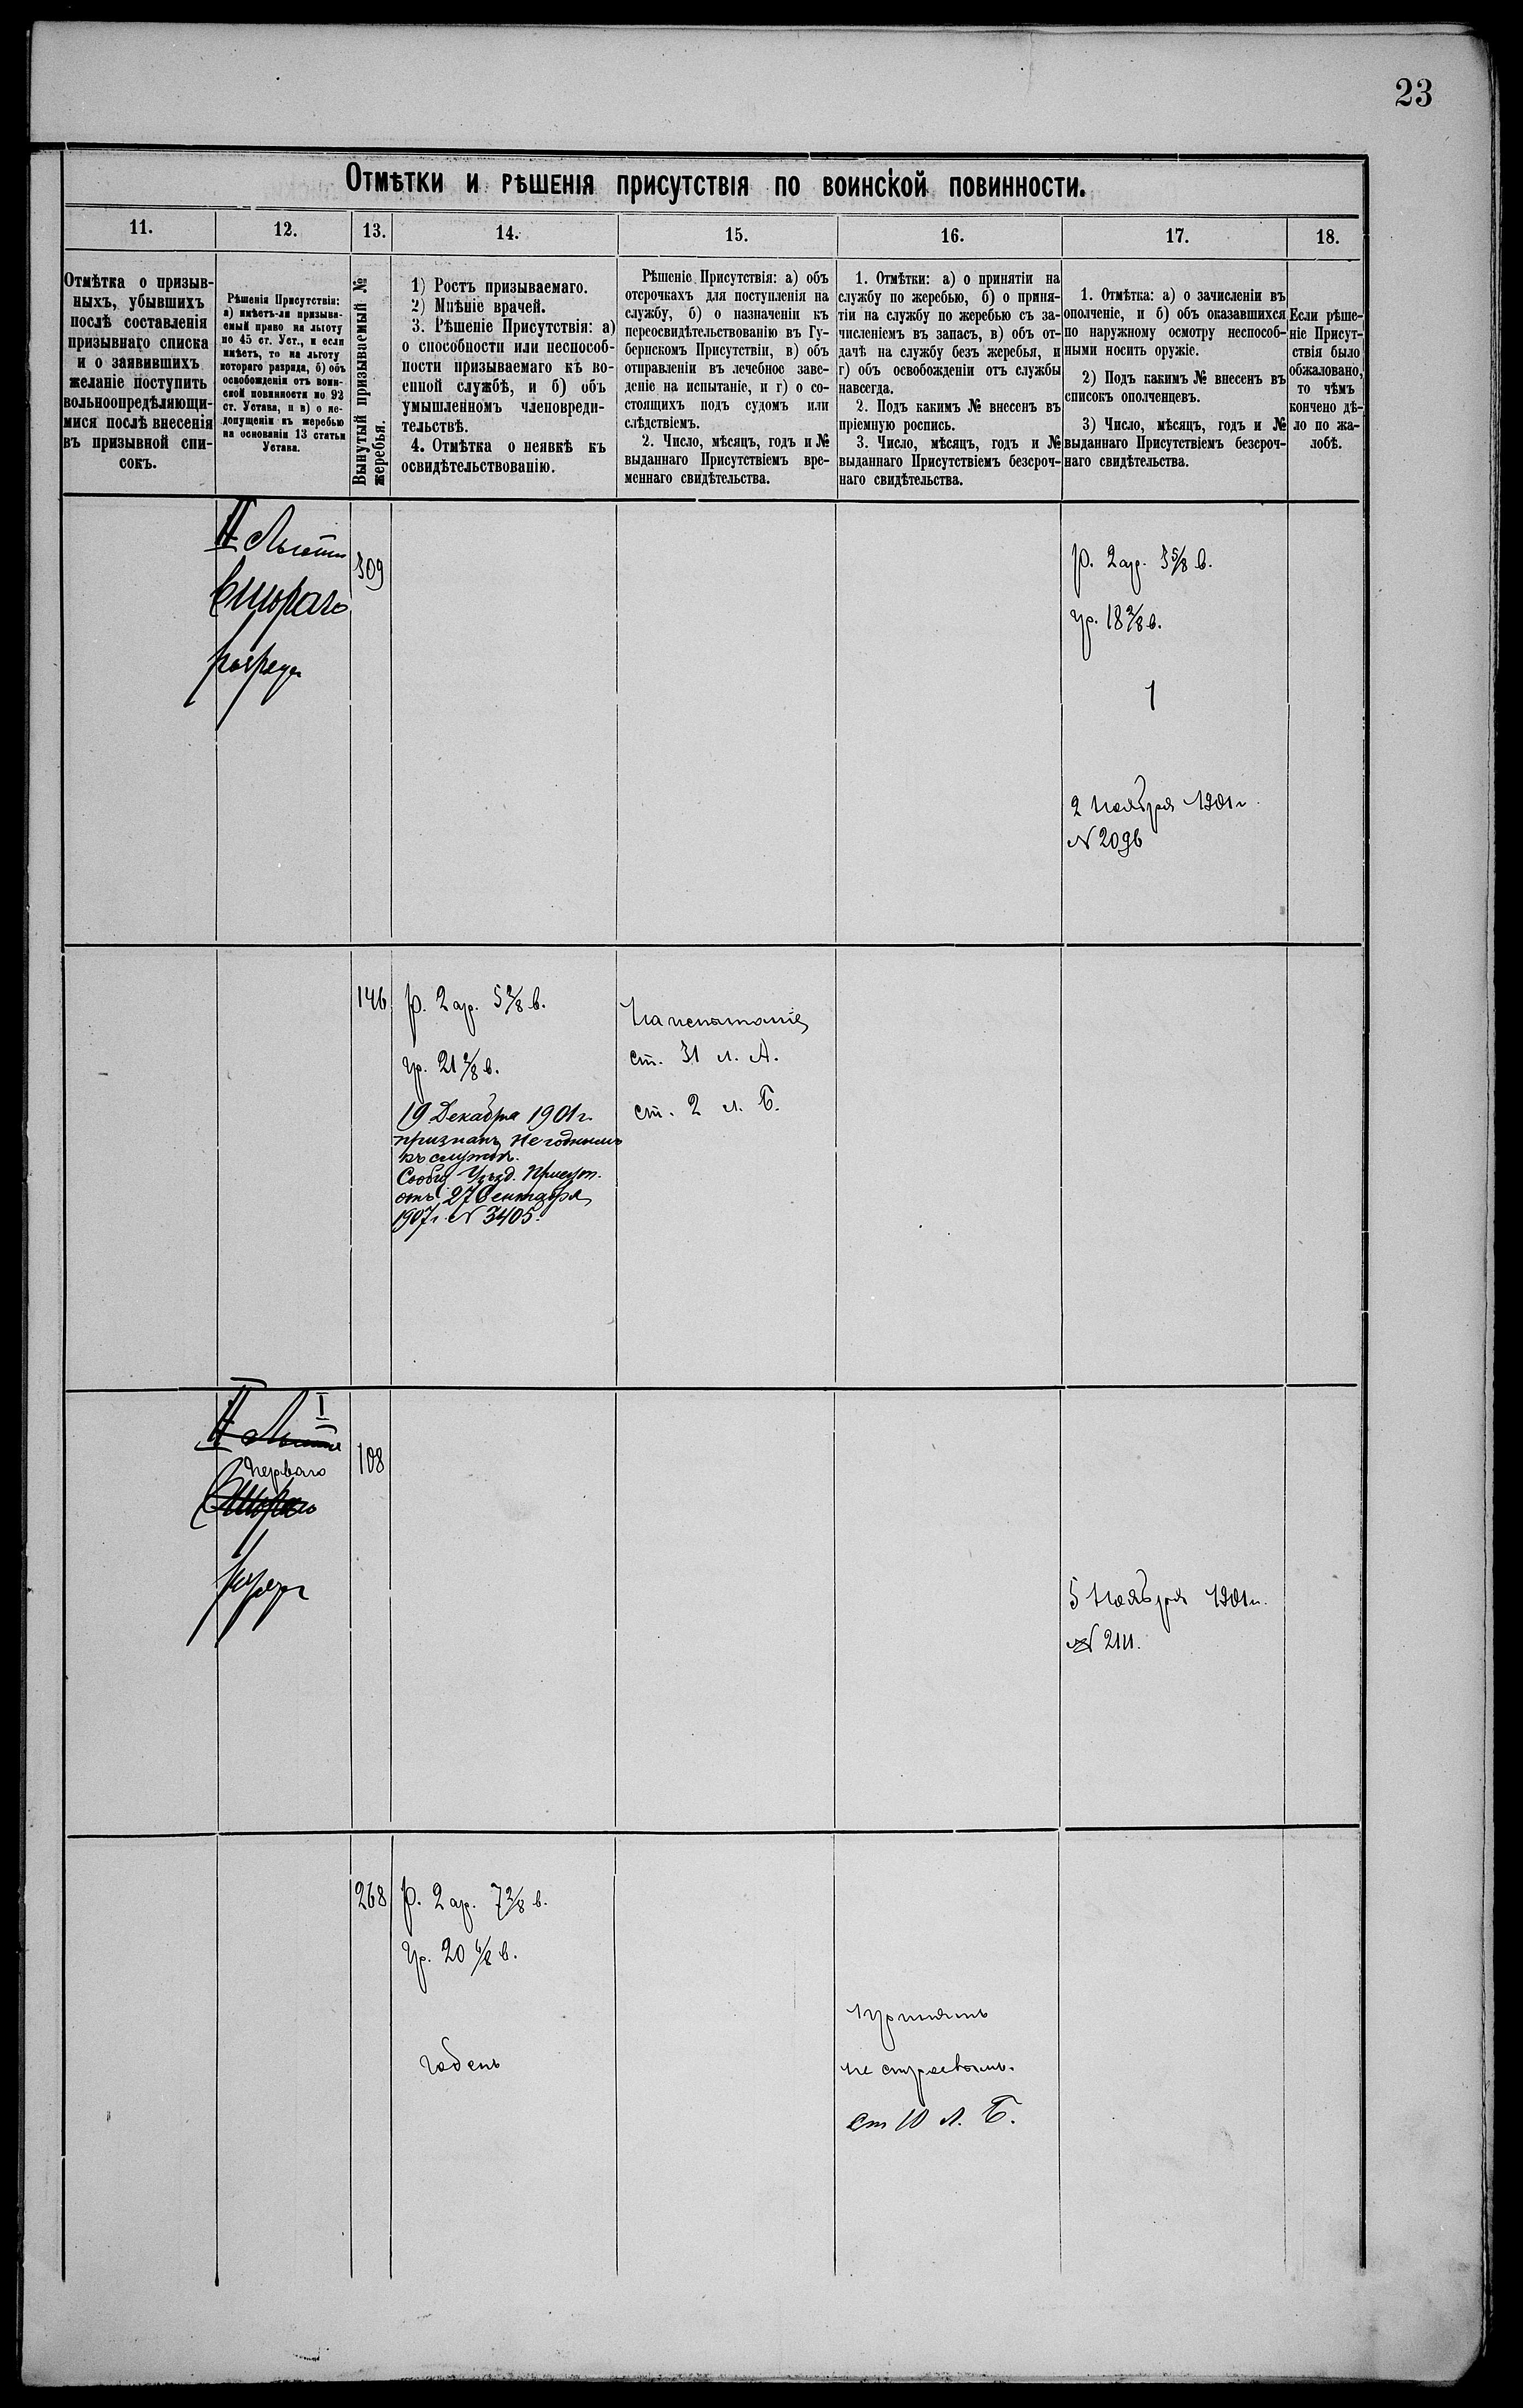 23
Отмѣтки и рѣшенія присутствія по воинской повинности.
11.
12.
13.
14.
15.
16.
17.
18.
Отмѣтка о призыв-
ныхъ, убывшихъ
послѣ составленія
призывнаго списка
и о заявившихъ
желаніе поступить
вольноопредѣляющи-
мися послѣ внесенія
въ призывной спи-
сокъ.
Рѣшенія Присутствія:
а) имѣетъ-ли призыва-
емый право на льготу
по 45 ст. Уст., и если
имѣетъ, то на льготу
котораго разряда, б) объ
освобожденіи отъ воин-
ской повинности по 92
ст. Устава, и в) о не-
допущеніи къ жеребью
на основаніи 13 статьи
Устава.
Вынутый призываемый №
жеребья.
1) Ростъ призываемаго.
2) Мнѣніе врачей.
3. Рѣшеніе Присутствія: а)
о способности или неспособ-
ности призываемаго къ во-
енной службѣ, и б) объ
умышленномъ членовреди-
тельствѣ.
4. Отмѣтка о неявкѣ къ
освидѣтельствованію.
Рѣшеніе Присутствія: а) объ
отсрочкахъ для поступленія на
службу, б) о назначеніи къ
переосвидѣтельствованію въ Гу-
бернскомъ Присутствіи, в) объ
отправленіи въ лечебное заве-
деніе на испытаніе, и г) о со-
стоящихъ подъ судомъ или
слѣдствіемъ.
2. Число, мѣсяцъ, годъ и №
выданнаго Присутствіемъ вре-
меннаго свидѣтельства.
1. Отмѣтки: а) о принятіи на
службу по жеребью, б) о приня-
тіи на службу по жеребью съ за-
численіемъ въ запасъ, в) объ от-
дачѣ на службу безъ жеребья, и
г) объ освобожденіи отъ службы
навсегда.
2. Подъ какимъ № внесенъ въ
пріемную роспись.
3. Число, мѣсяцъ, годъ и №
выданнаго Присутствіемъ безсроч-
наго свидѣтельства.
1. Отмѣтка: а) о зачисленіи въ
ополченіе, и б) объ оказавшихся
по наружному осмотру неспособ-
ными носить оружіе.
2) Подъ какимъ № внесенъ въ
списокъ ополченцевъ.
3) Число, мѣсяцъ, годъ и №
выданнаго Присутствіемъ безсроч-
наго свидѣтельства.
Если рѣше-
ніе Присут-
ствія было
обжаловано,
то чѣмъ
кончено дѣ-
ло по жа-
лобѣ.
II Льготы
Второго
разряда
309
р. 2 ар. 3 5/8 в.
гр. 18 2/8 в.
1
2 Ноября 1901 г.
№ 2096
146
р. 2 ар. 5 2/8 в.
гр. 21 2/8 в.
19 Декабря 1901 г.
признанъ негоднымъ
къ службѣ.
Сообщ Уѣзд. Присут.
отъ 27 Сентября
1907 г. № 3405.
На испытаніе
ст. 31 л. А.
ст. 2 л. Б.
II Льготы I
перваго
Второго
разряда
108
5 Ноября 1901 г.
№ 2111.
268
р. 2 ар. 7 2/8 в.
гр. 20 6/8 в.
Годенъ
Принятъ
не строевымъ.
Ст 10 л. Б.